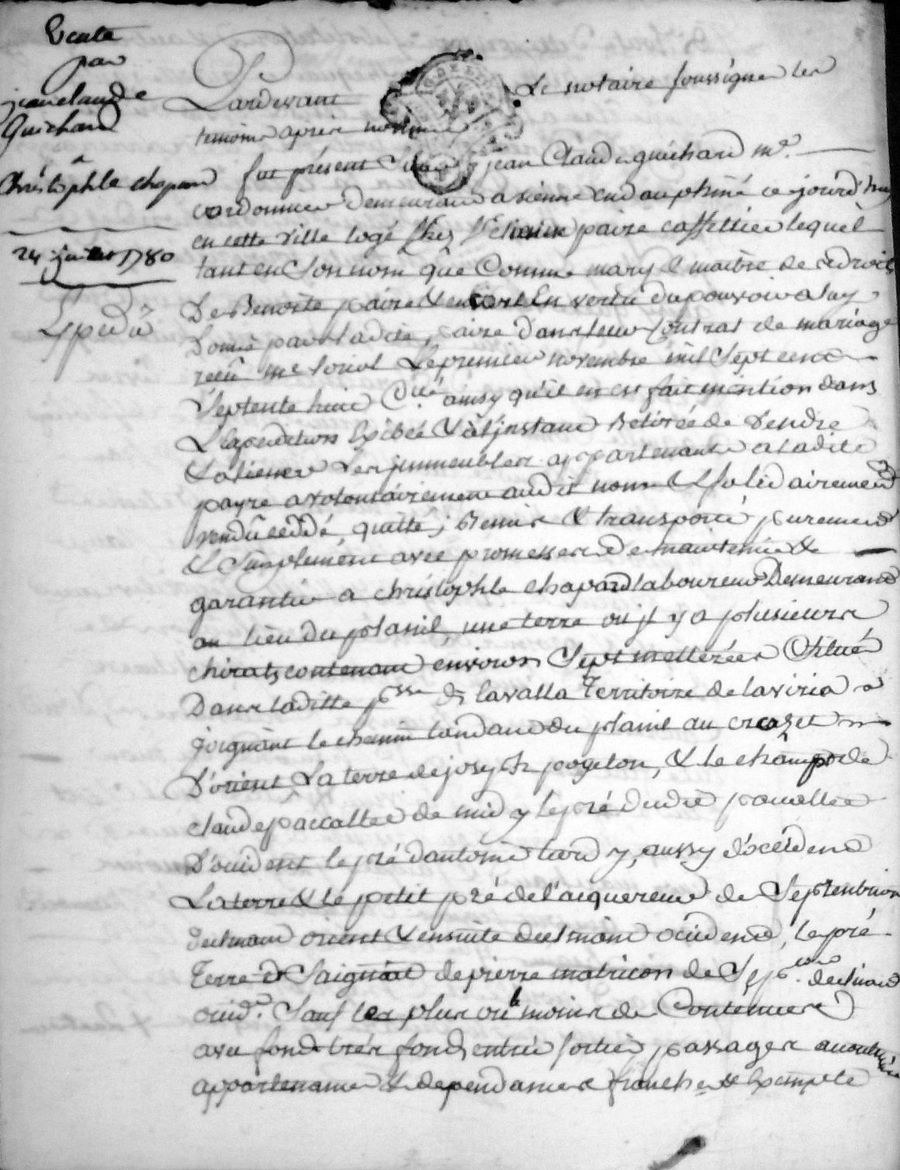 Vente
par
jean claude
Guichard
à
Christophle chapard
24 juillet 1780
Expédié
Pardevant Le notaire soussigné les
temoins apres nommés
fut présent jean Claude guichard me.
cordonnier demeurant a vienne en dauphiné ce jourd'huy
en cette ville logé chez paire caffettier lequel
tant en son nom que comme mary & maitre des droits
De Benoite paire & encore En vertu du pouvoir a luy
Donné par ladite paire dans leur Contrat de mariage
reçu me Loriol Le premier novembre mil sept cent
septente neuf ainsy qu'il en est fait mention dans
L'expedition Exibée & à l'jnstant Retirée de Vendre
& aliener Les jmmeubles appartenant a ladite
payre a volontairement audit nom & solidairement
vendû cedé, quitté, Remis & transporté purement
& simplement avec promesses de maintenir &
garantir a christophle chapard laboureur Demeurant
au lieu du planil une terre ou jl y a plusieurs
chirats contenant environ Sept metterées Située
Dans laditte psse de lavalla Territoire de laviria
joignant le chemin tandant du planil au crozet
D'orient La terre de joseph pogeton, & le champ de
claude paccallee de midy le pré dudit paccallee
D'occident le pré d'antoine tardy, aussy d'occident
La terre & le petit pré de l'acquereur de Septentrion
declinant orient & ensuite declinant occident, le pré
Terre & Saignat de pierre matricon de Sept.on declinant
occid.t Sauf les plus ou moins de Contenues
avec fond trés fond, entrée sortie passages
appartenances & dependances franche & Exempte